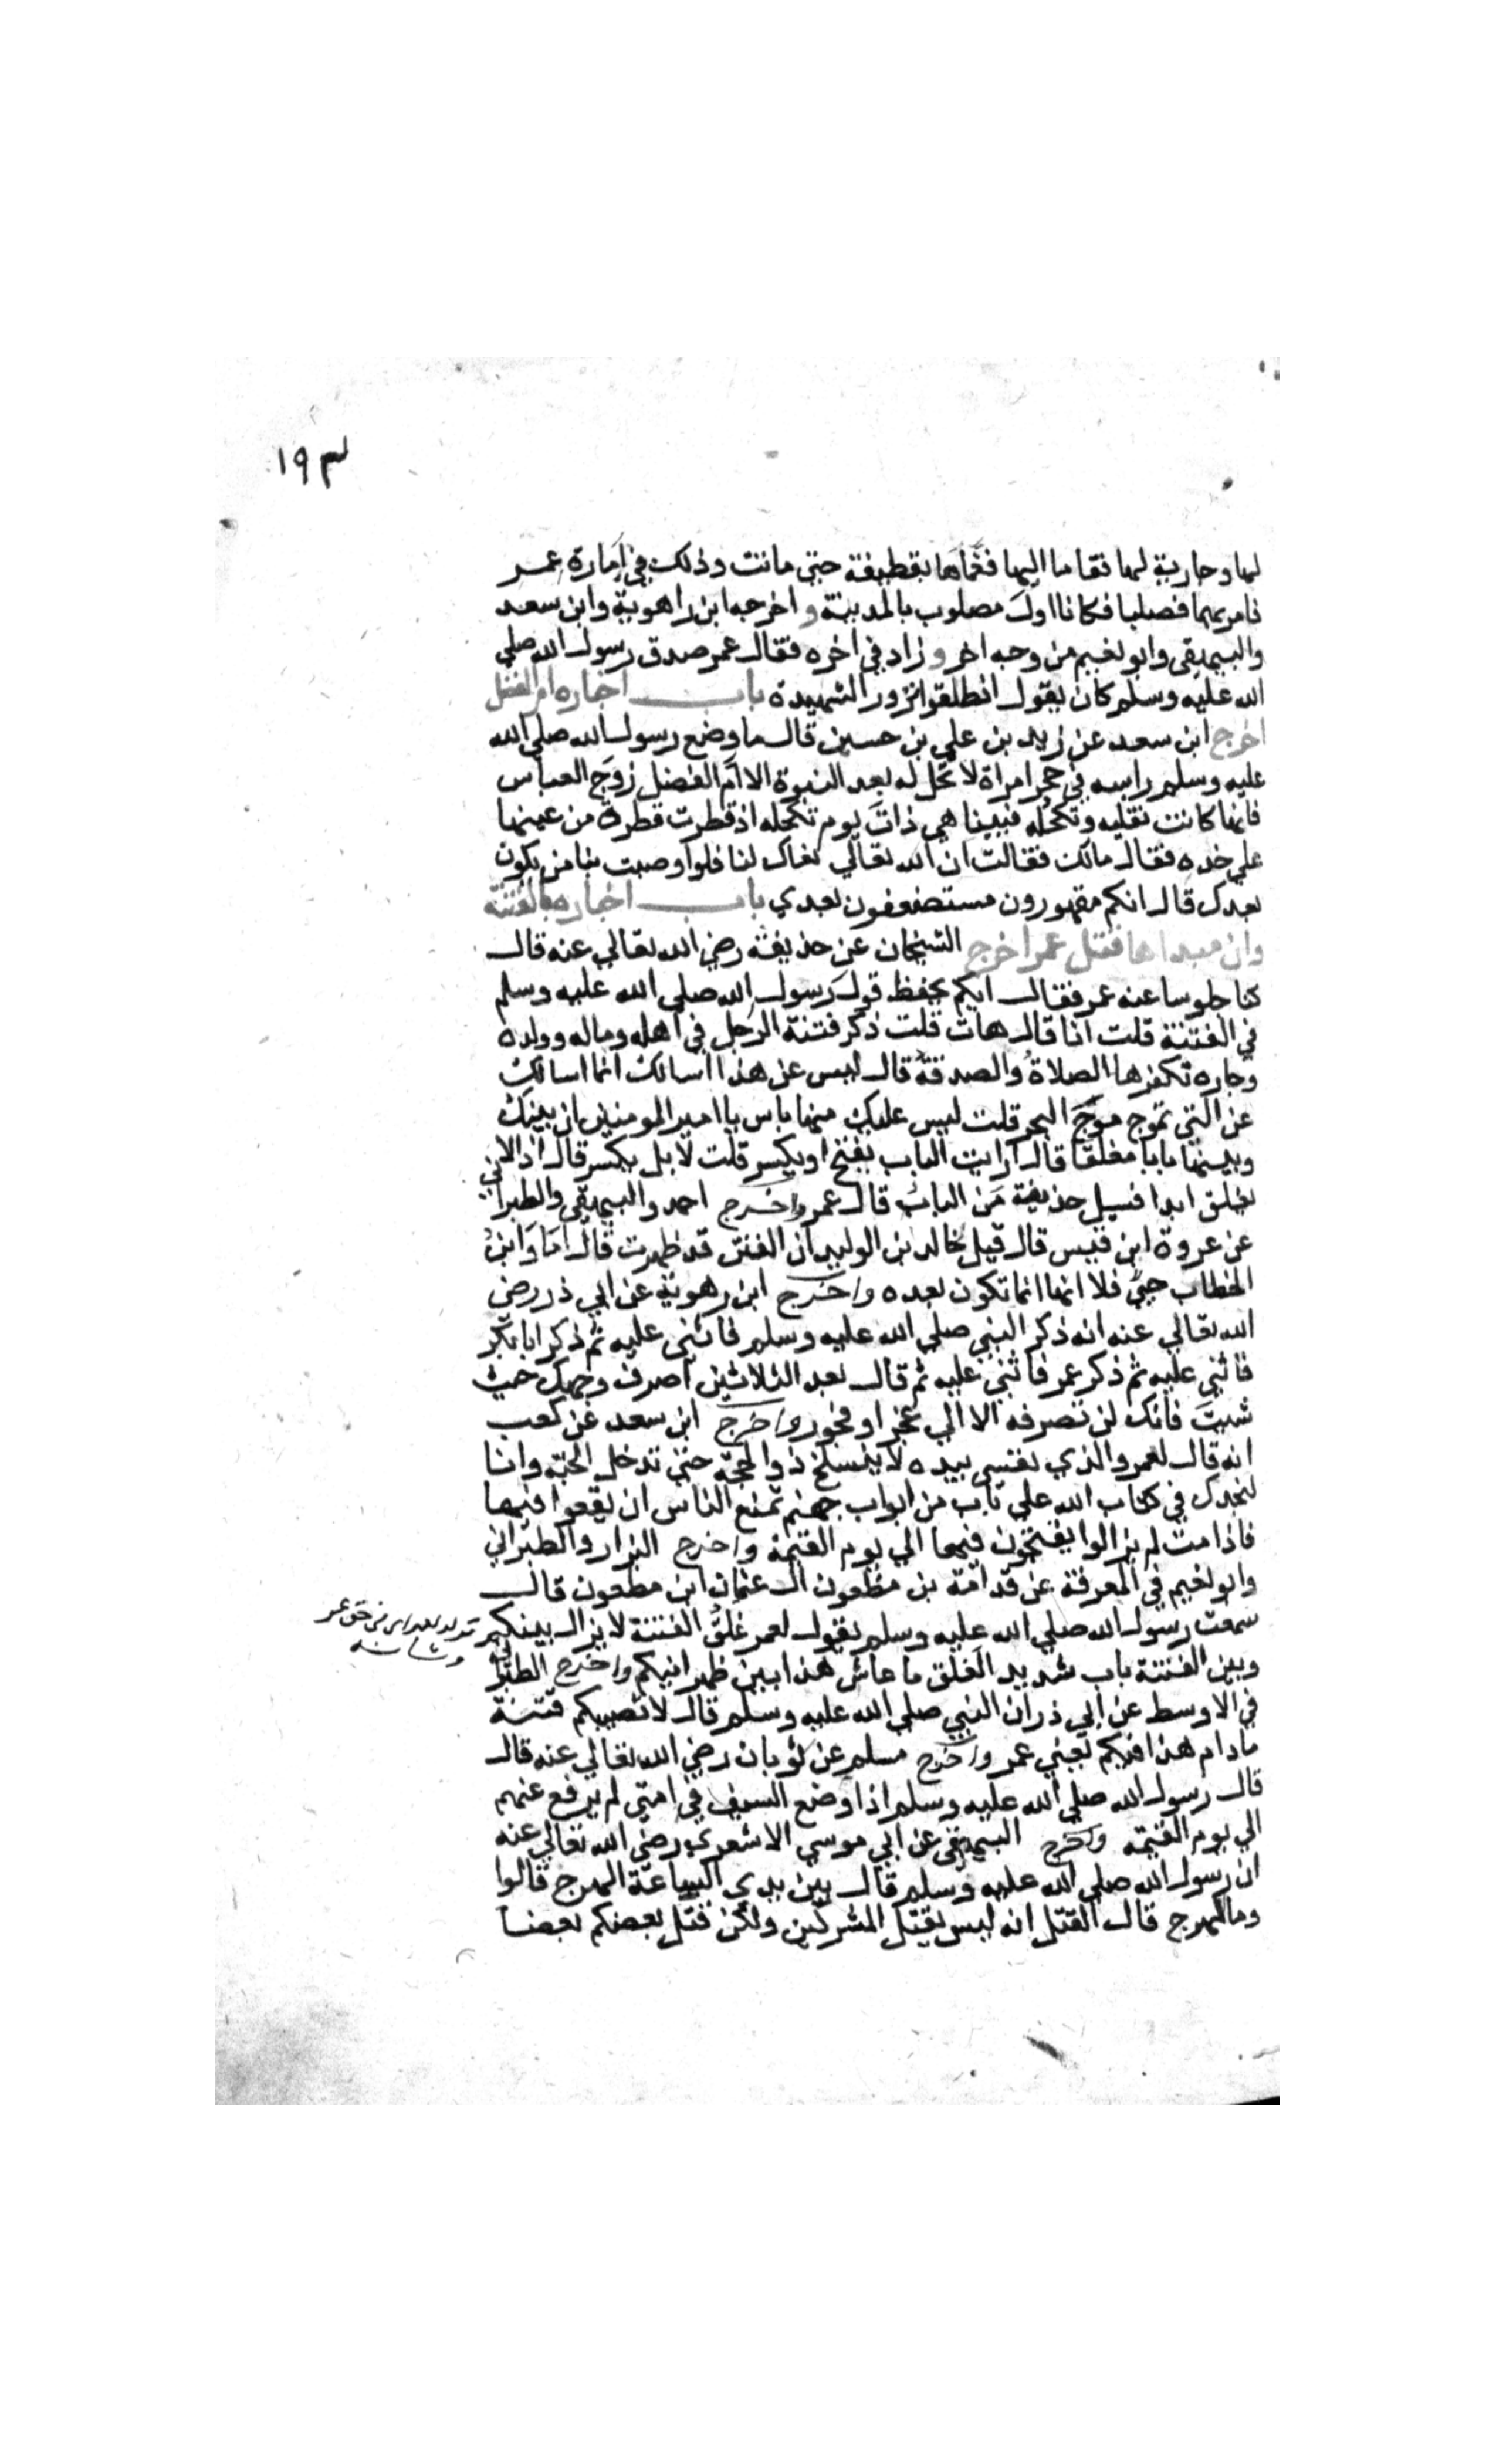 ١٩٣
لها وجارية لها فقاما اليها فغماها بقطيفة حتى ماتت وذلك في امارة عمر
فامر بهما فصلبا فكانا اول مصلوب بالمدينة واخرجه ابن راهوية وابن سعد
والبيهقي وابو نعيم من وجه اخر وزاد في اخره فقال عمر صدق رسول الله صلي
الله عليه وسلم كان يقول انطلقوا نزور الشهيدة باب اخباره ام الفضل
اخرج ابن سعد عن زيد بن علي بن حسين قال ما وضع رسول الله صلي الله
عليه وسلم راسه في حجر امراة لا تحل له بعد النبوة الا ام الفضل زوج العباس
فانها كانت تفليه وتكحله فبينا هي ذات يوم تكحله اذ قطرت قطرة من عينها
علي خده فقال مالك فقالت ان الله تعالي نعاك لنا فلو اوصيت بنا من يكون
بعدك قال انكم مقهورون مستضعفون بعدي باب اخباره بالفتنة
وان مبداها قتل عمر اخرج الشيخان عن حذيفة رضي الله تعالي عنه قال
كنا جلوسا عند عمر فقال ايكم يحفظ قول رسول الله صلي الله عليه وسلم
في الفتنة قلت انا قال هات قلت ذكر فتنة الرجل في اهله وماله وولده
وجاره تكفرها الصلاة والصدقة قال ليس عن هذا اسالك انما اسالك
عن التي تموج موج البحر قلت ليس عليك منها باس يا امير المومنين ان بينك
وبينها بابا مغلقا قال ارايت الباب يفتح او يكسر قلت لا بل يكسر قال اذا لا
يغلق ابدا فسيل حذيفة من الباب قال عمر واخرج احمد والبيهقي والطبراني
عن عروة ابن قيس قال قيل لخالد بن الوليد ان الفتن قد ظهرت قال اما وابن
الخطاب حي فلا انها انما تكون بعده واخرج ابن رهوية عن ابي ذر رضي
الله تعالي عنه انه ذكر النبي صلي الله عليه وسلم فاثني عليه ثم ذكر ابا بكر
فاثني عليه ثم ذكر عمر فاثني عليه ثم قال بعد الثلاثين اصرف وجهك حيث
شيت فانك لن تصرفه الا الي عجز او فجور واخرج ابن سعد عن كعب
انه قال لعمر والذي نفسي بيده لا ينسلخ ذو الحجة حتي تدخل الجنة وانا
لنجدك في كتاب الله علي باب من ابواب جهنم تمنع الناس ان يقعوا فيها
فاذا مت لم يزالوا يفتحون فيها الي يوم القيمة واخرج البزار والطبراني
وابو نعيم في المعرفة عن قدامة بن مظعون ان عثمان ابن مظعون قال
سمعت رسول الله صلي الله عليه وسلم يقول لعمر غلق الفتنة لا يزال بينكم
وبين الفتنة باب شديد الغلق ما عاش هذا بين ظهرانيكم واخرج الطبراني
في الاوسط عن ابي ذر ان النبي صلي الله عليه وسلم قال لا تصيبكم فتنة
ما دام هذا فيكم يعني عمر واخرج مسلم عن ثوبان رضي الله تعالي عنه قال
قال رسول الله صلي الله عليه وسلم اذا وضع السيف في امتي لم يرفع عنهم
الي يوم القيمة واخرج البيهقي عن ابي موسي الاشعري رضي الله تعالي عنه
ان رسول الله صلي الله عليه وسلم قال بين يدي الساعة الهرج قالوا
وما الهرج قال القتل انه ليس بقتل المشركين ولكن قتل بعضكم بعضا
في حق عمر